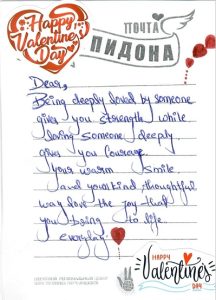 Happy
Valentine's
Day
ПОЧТА
ПИДОНА
Dear,
Being deeply loved by someone
gives you strength while
loving someone deeply
gives you courage
your warm smile
and your kind, thoughtful
way love the joy that
you bring to life
everyday
HAPPY
Valentine's
DAY